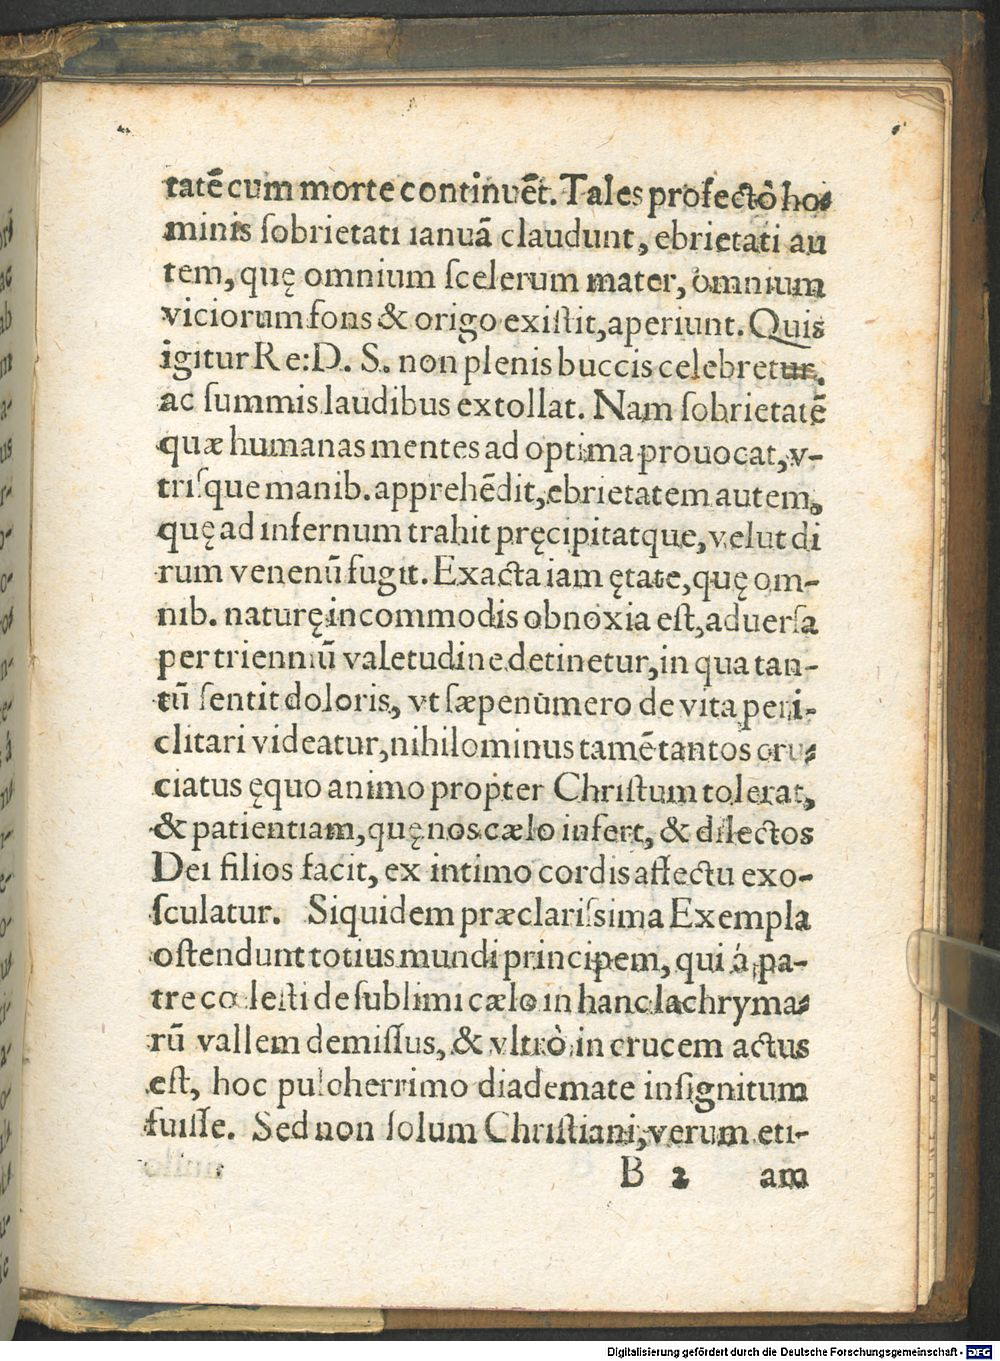 tatē cum morte continuēt. Tales profectò ho-
minis ſobrietati ianuā claudunt, ebrietati au
tem, quę omnium ſcelerum mater, omnium
viciorum fons & origo exiſtit, aperiunt. Quis
igitur Re: D. S. non plenis buccis celebretur,
ac ſummis laudibus extollat. Nam ſobrietatē
quæ humanas mentes ad optima prouocat, v-
triſque manib. apprehēdit, ebrietatem autem,
quę ad infernum trahit pręcipitatque, velut di
rum venenū fugit. Exacta iam ętate, quę om-
nib. naturę incommodis obnoxia eſt, aduerſa
per trienniū valetudine detinetur, in qua tan-
tū ſentit doloris, vt ſæpenùmero de vita peri-
clitari videatur, nihilominus tamē tantos cru-
ciatus ęquo animo propter Chriſtum tolerat,
& patientiam, quę nos cælo infert, & dilectos
Dei filios facit, ex intimo cordis affectu exo-
ſculatur. Siquidem præclariſsima Exempla
oſtendunt totius mundi principem, qui á pa-
tre cœleſti de ſublimi cælo in hanc lachryma-
rū vallem demiſſus, & vltrò in crucem actus
eſt, hoc pulcherrimo diademate inſignitum
fuiſſe. Sed non ſolum Chriſtiani, verum eti-
B 2 am
Digitalisierung gefördert durch die Deutsche Forschungsgemeinschaft - DFG